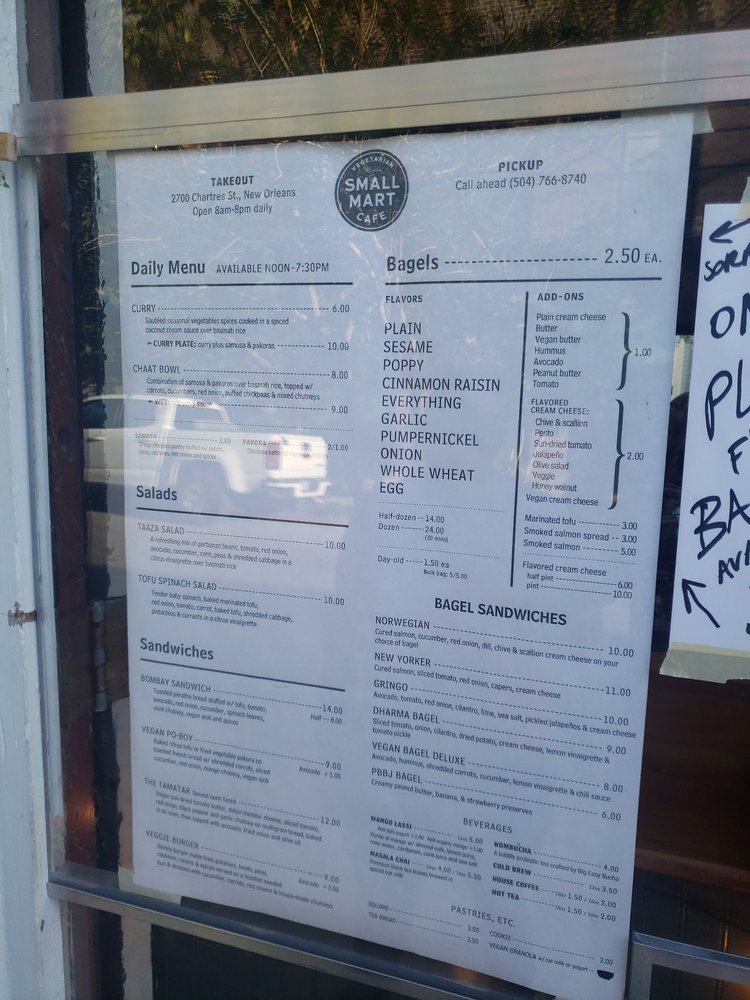 TAKEOUT
2700 Chartres St., New Orleans
Open 8am-8pm daily
VEGETARIAN
SMALL
MART
CAFE
PICKUP
Call ahead (504) 766-8740
Daily Menu AVAILABLE NOON-7:30PM
CURRY 6.00
Sautéed seasonal vegetables spices cooked in a spiced
coconut cream sauce over basmati rice
CURRY PLATE: curry plus samosa & pakoras 10.00
CHAAT BOWL 8.00
Combination of samosa & pakoras over basmati rice, topped w/
carrots, cucumbers, red onion, puffed chickpeas & mixed chutneys
WET: sauce 9.00
SAMOSA 3.00
Crispy chickpea pastry stuffed w/ potato,
peas, cashews, red chilies and spices
PAKORA 2/1.00
Chickpea battered
Salads
TAAZA SALAD 10.00
A refreshing mix of garbanzo beans, tomato, red onion,
avocado, cucumber, corn, peas & shredded cabbage in a
citrus vinaigrette over basmati rice
TOFU SPINACH SALAD 10.00
Tender baby spinach, baked marinated tofu,
red onion, tomato, carrot, baked tofu, shredded cabbage,
pistachios & currants in a citrus vinaigrette
Sandwiches
BOMBAY SANDWICH 14.00
Toasted paratha bread stuffed w/ tofu, tomato, Half 8.00
avocado, red onion, cucumber, spinach leaves,
mint chutney, vegan aioli and spices
VEGAN PO-BOY 9.00
Baked citrus tofu or fried vegetable pakora on Avocado +1.00
toasted french bread w/ shredded carrots, sliced
cucumber, red onion, mango chutney, vegan aioli
THE TAMATAR Served open faced 12.00
Vegan sun-dried tomato butter, daiya cheddar cheese, sliced tomato,
red onion, black pepper and garlic chutney on multigrain bread, baked
in an oven, then topped with avocado, fried onion and olive oil
VEGGIE BURGER 9.00
Savory burger made from potatoes, beets, peas, Avocado +1.00
cashews, raisins & spices served on a toasted seeded
bun & dressed with cucumber, carrots, red onions & house-made chutneys
Bagels 2.50 EA.
FLAVORS
PLAIN
SESAME
POPPY
CINNAMON RAISIN
EVERYTHING
GARLIC
PUMPERNICKEL
ONION
WHOLE WHEAT
EGG
Half-dozen 14.00
Dozen 24.00
(30 mins)
Day-old 1.50 ea
Bulk bag: 5/5.00
ADD-ONS
Plain cream cheese
Butter
Vegan butter
Hummus
Avocado
Peanut butter
Tomato
1.00
FLAVORED
CREAM CHEESE:
Chive & scallion
Pesto
Sun-dried tomato
Jalapeño
Olive salad
Veggie
Honey walnut
Vegan cream cheese
2.00
Marinated tofu 3.00
Smoked salmon spread 3.00
Smoked salmon 5.00
Flavored cream cheese
half pint 6.00
pint 10.00
BAGEL SANDWICHES
NORWEGIAN 10.00
Cured salmon, cucumber, red onion, dill, chive & scallion cream cheese on your
choice of bagel
NEW YORKER 11.00
Cured salmon, sliced tomato, red onion, capers, cream cheese
GRINGO 10.00
Avocado, tomato, red onion, cilantro, lime, sea salt, pickled jalapeños & cream cheese
DHARMA BAGEL 9.00
Sliced tomato, onion, cilantro, dried potato, cream cheese, lemon vinaigrette &
tomato pickle
VEGAN BAGEL DELUXE 8.00
Avocado, hummus, shredded carrots, cucumber, lemon vinaigrette & chili sauce
PBBJ BAGEL 6.00
Creamy peanut butter, banana, & strawberry preserves
BEVERAGES
MANGO LASSI 16oz 5.00
Add oat yogurt +1.00 Add organic mango +1.00
Purée of mango w/ almond milk, lemon juice,
rose water, cardamon, cane juice and sea salt
MASALA CHAI 10oz 4.00 / 16oz 5.50
Premium black tea leaves brewed in
spiced oat milk
KOMBUCHA 4.00
A bubbly probiotic tea crafted by Big Easy Bucha
COLD BREW 12oz 3.50
HOUSE COFFEE 10oz 1.50 / 16oz 2.00
HOT TEA 10oz 1.50 / 16oz 2.00
PASTRIES, ETC.
SQUARE 3.50
TEA BREAD 3.50
COOKIE 2.00
VEGAN GRANOLA w/ oat milk or yogurt
ON
PL
F
BA
AV